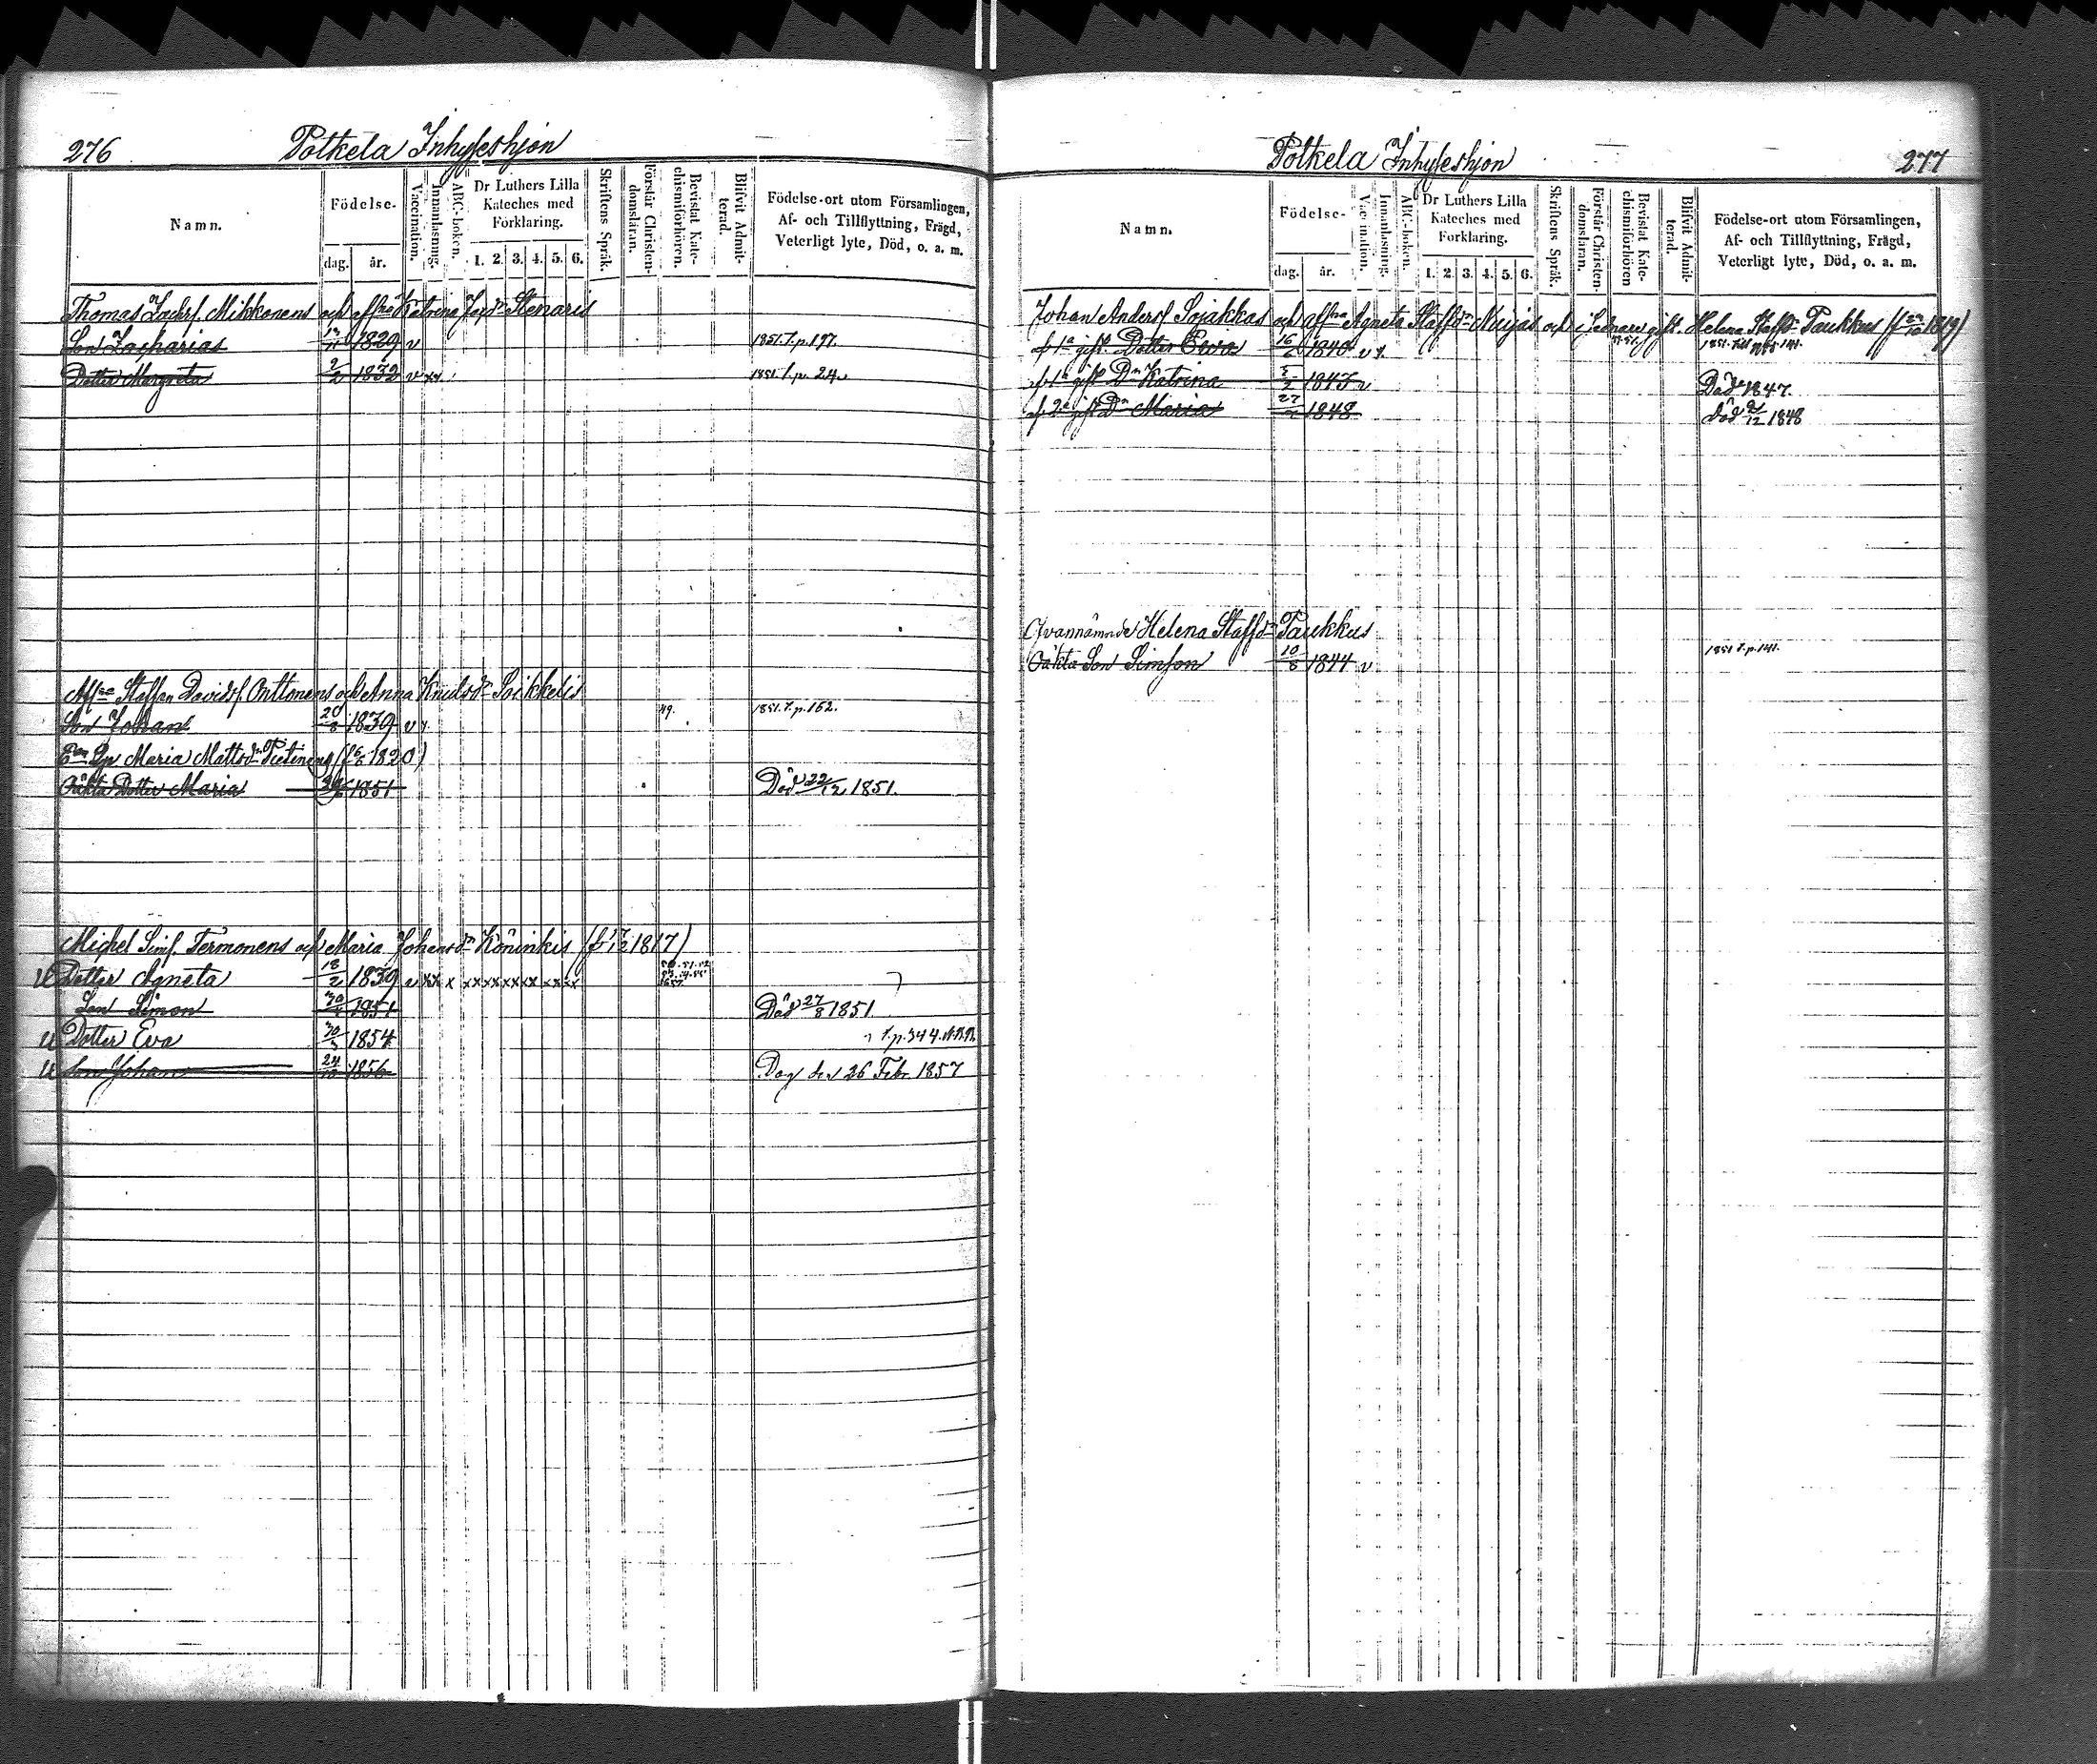 276 Potkela Inhyseshjon
Namn. Födelse- dag. år. Vaccination. Innanläsning. ABC-boken. Dr Luthers Lilla Kateches med Förklaring. 1. 2. 3. 4. 5. 6. Skriftens Språk. Förstår Christendomsläran. Bevistat Katechismiförhören. Blifvit Admitterad. Födelse-ort utom Församlingen, Af- och Tillflyttning, Frägd, Veterligt lyte, Död, o. a. m.
Thomas Zachrs. Mikkonens och Katrina Stenaris
Son Zacharias 1829 v 1851. T. p. 197.
Dotter Margreta 2/2 1832 v xx 1851. T. p. 24
Staffan Davids. Onttonens och Anna Knutsdr Soikkelis
Son Johan 20/8 1839 v x 49. 1851. T. p. 162.
Maria Mattsdr Pietinens 1820)
Oäkta Dotter Maria 1851 Död 22/12 1851.
Michel Sims. Termonens och Maria Johansdr Köninkis 1817)
Dotter Agneta 18/2 1839 v xx x xx xx xx xx xx xx
Son Simon 1851 Död 27/8 1851
Dotter Eva 1854 T. p. 344.
Son Johan 24/10 1856 den 26 Febr. 1857
Potkela Inhyseshjon 277
Namn. Födelse- dag. år. Vaccination. Innanläsning. ABC-boken. Dr Luthers Lilla Kateches med Förklaring. 1. 2. 3. 4. 5. 6. Skriftens Språk. Förstår Christendomsläran. Bevistat Katechismiförhören Blifvit Admitterad. Födelse-ort utom Församlingen, Af- och Tillflyttning, Frägd, Veterligt lyte, Död, o. a. m.
Johan Anders. Soiakkas och Agneta Staffsdr Nuijas och gift. Helena Staffsdr Paukkus 1819)
af 1a gift. Dotter Eva 1840 v x.
af 1a gift Dr Katrina 1847 v Död 1847.
af 2a gift Dr Maria 1848 Död 1848
Ofvannämnde Helena Staffsdr Paukkus
Oäkta Son Simson 10/8 1844 v 1851 T. p. 141.